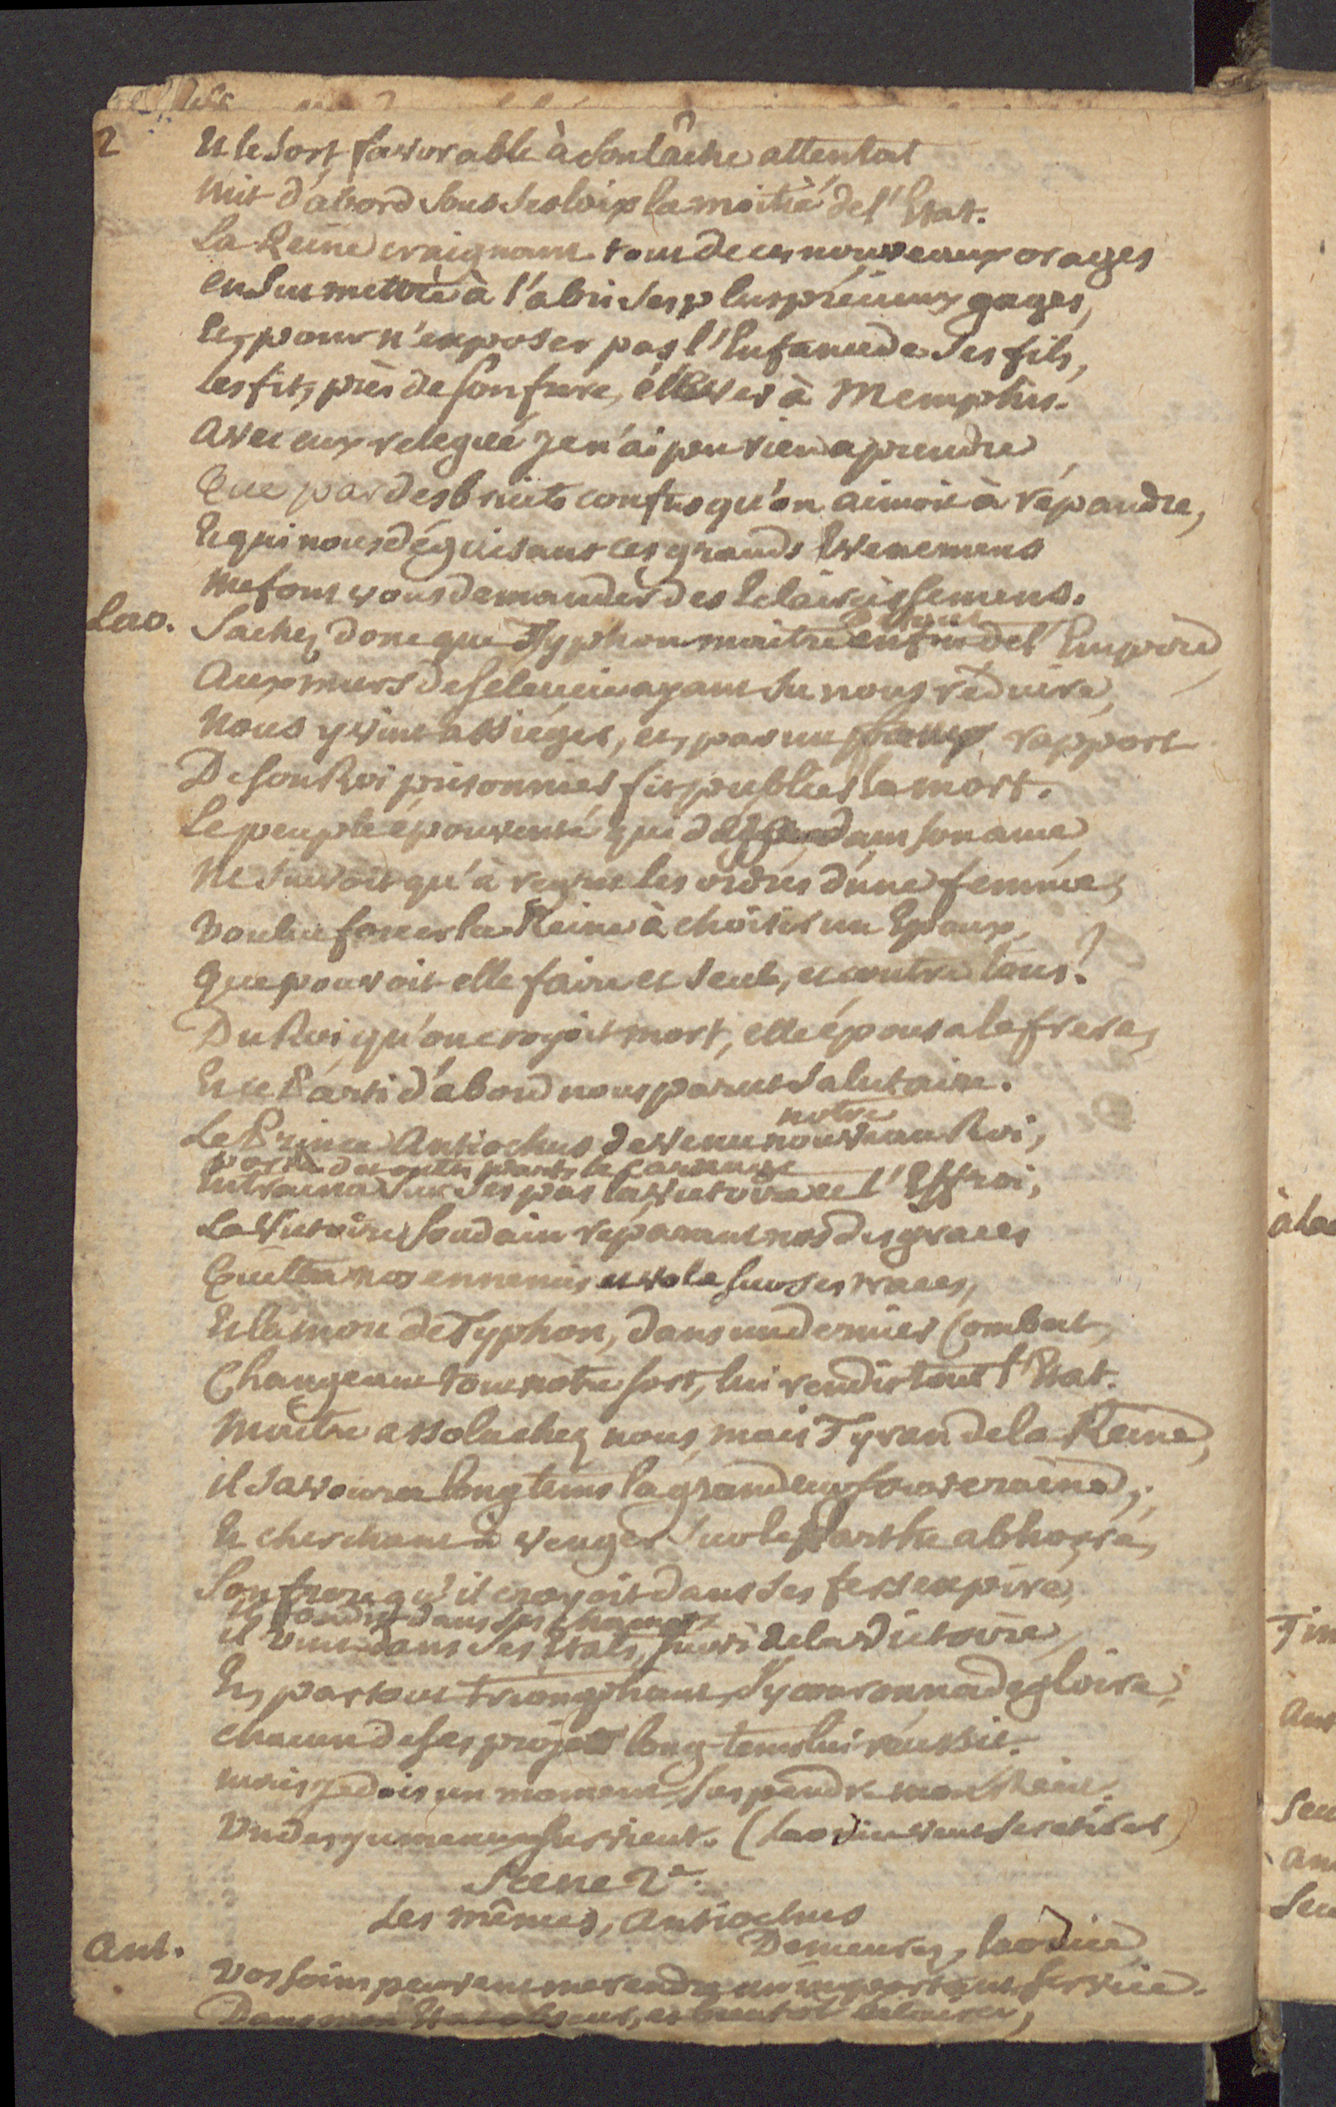 2
Et le Sort, favorable à son lâche attentat
Mit d'abord sous ses loix la moitié de l'Etat.
La Reine craignant tout de ces nouveaux orages
en sut mettre à l'abri ses plus précieux gages,
Et pour n'exposer pas l'Enfance de ses fils,
Les fit, près de son frere, éllever à Memphis.
Avec eux relegué je n'ai peu rien aprendre
Que par des bruits confus qu'on aimoit à répandre,
Et qui nous déguisant ces grands Evenemens
Me font vous demander des Eclaircissemens.
Lao. Sachez donc que Tryphon maitre enfin de l'Empire
Aux murs de Seleucie ayant su nous réduire,
Nous y vint assiéger, et, par un faux rapport
De son Roi prisonnier fit publier la mort.
Le peuple épouventé qui dans son ame
Ne suivoit qu'à regret les ordres d'une femme,
Voulut forcer la Reine à choisir un Epoux,
Que pouvoit elle faire et seule, et contre tous?
Du Roi, qu'on croyoit mort, elle épousa le frere,
Et ce Parti d'abord nous parut salutaire.
notre
Le Prince Antiochus devenu nouveau Roi,
porta de toutes parts le carnage
Entraina sur ses pas la victoire et l'Effroi,
La Victoire soudain réparant nos disgraces
Quitta nos ennemis et vola sur ses traces,
Et la mort de Tryphon, dans un dernier Combat,
Changeant tout nôtre sort, lui rendit tout l'Etat.
Maitre absolu chez nous, mais Tyran de la Reine,
il savoura longtems la grandeur souveraine,
Et cherchant à venger sur le Parthe abhorré,
Son frere qu'il croyoit dans ses fers expiré,
dans ses champs
il vint dans ses Etats, suivi de la Victoire
Et, partout triomphant, s'y couronna de gloire,
Chacun de ses projets long-tems lui réussit.
Mais je dois un moment suspendre mon Récit.
Un des jumeaux survient. (Laodice veut se retirer)
Scene 2e.
Les mêmes, Antiochus
Ant. Demeurez, Laodice,
Vos soins peuvent me rendre un important service.